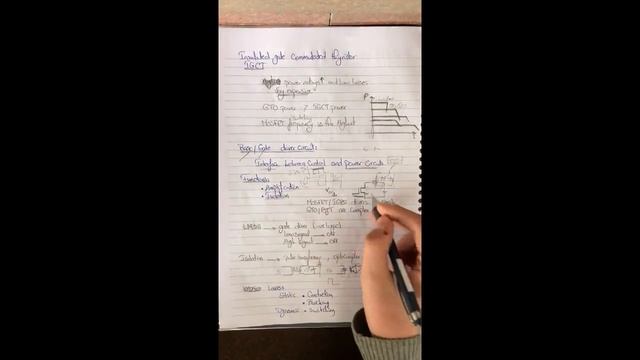 Insulated gate Commutated thyristor
IGCT
power and low losses
Very expensive
GTO power > IGCT power
MOSFET frequency is the highest
P
Base/Gate driver Circuits
Interface between Control and power Circuits
Functions
• Amplification
• Isolation
MOSFET/IGBT drivers
GTO/BJT are Complex
→ gate driver
Low signal → ON
High signal → OFF
Isolation → pulse transformer, optocoupler
Losses
Static • Conduction
• Blocking
Dynamic • Switching